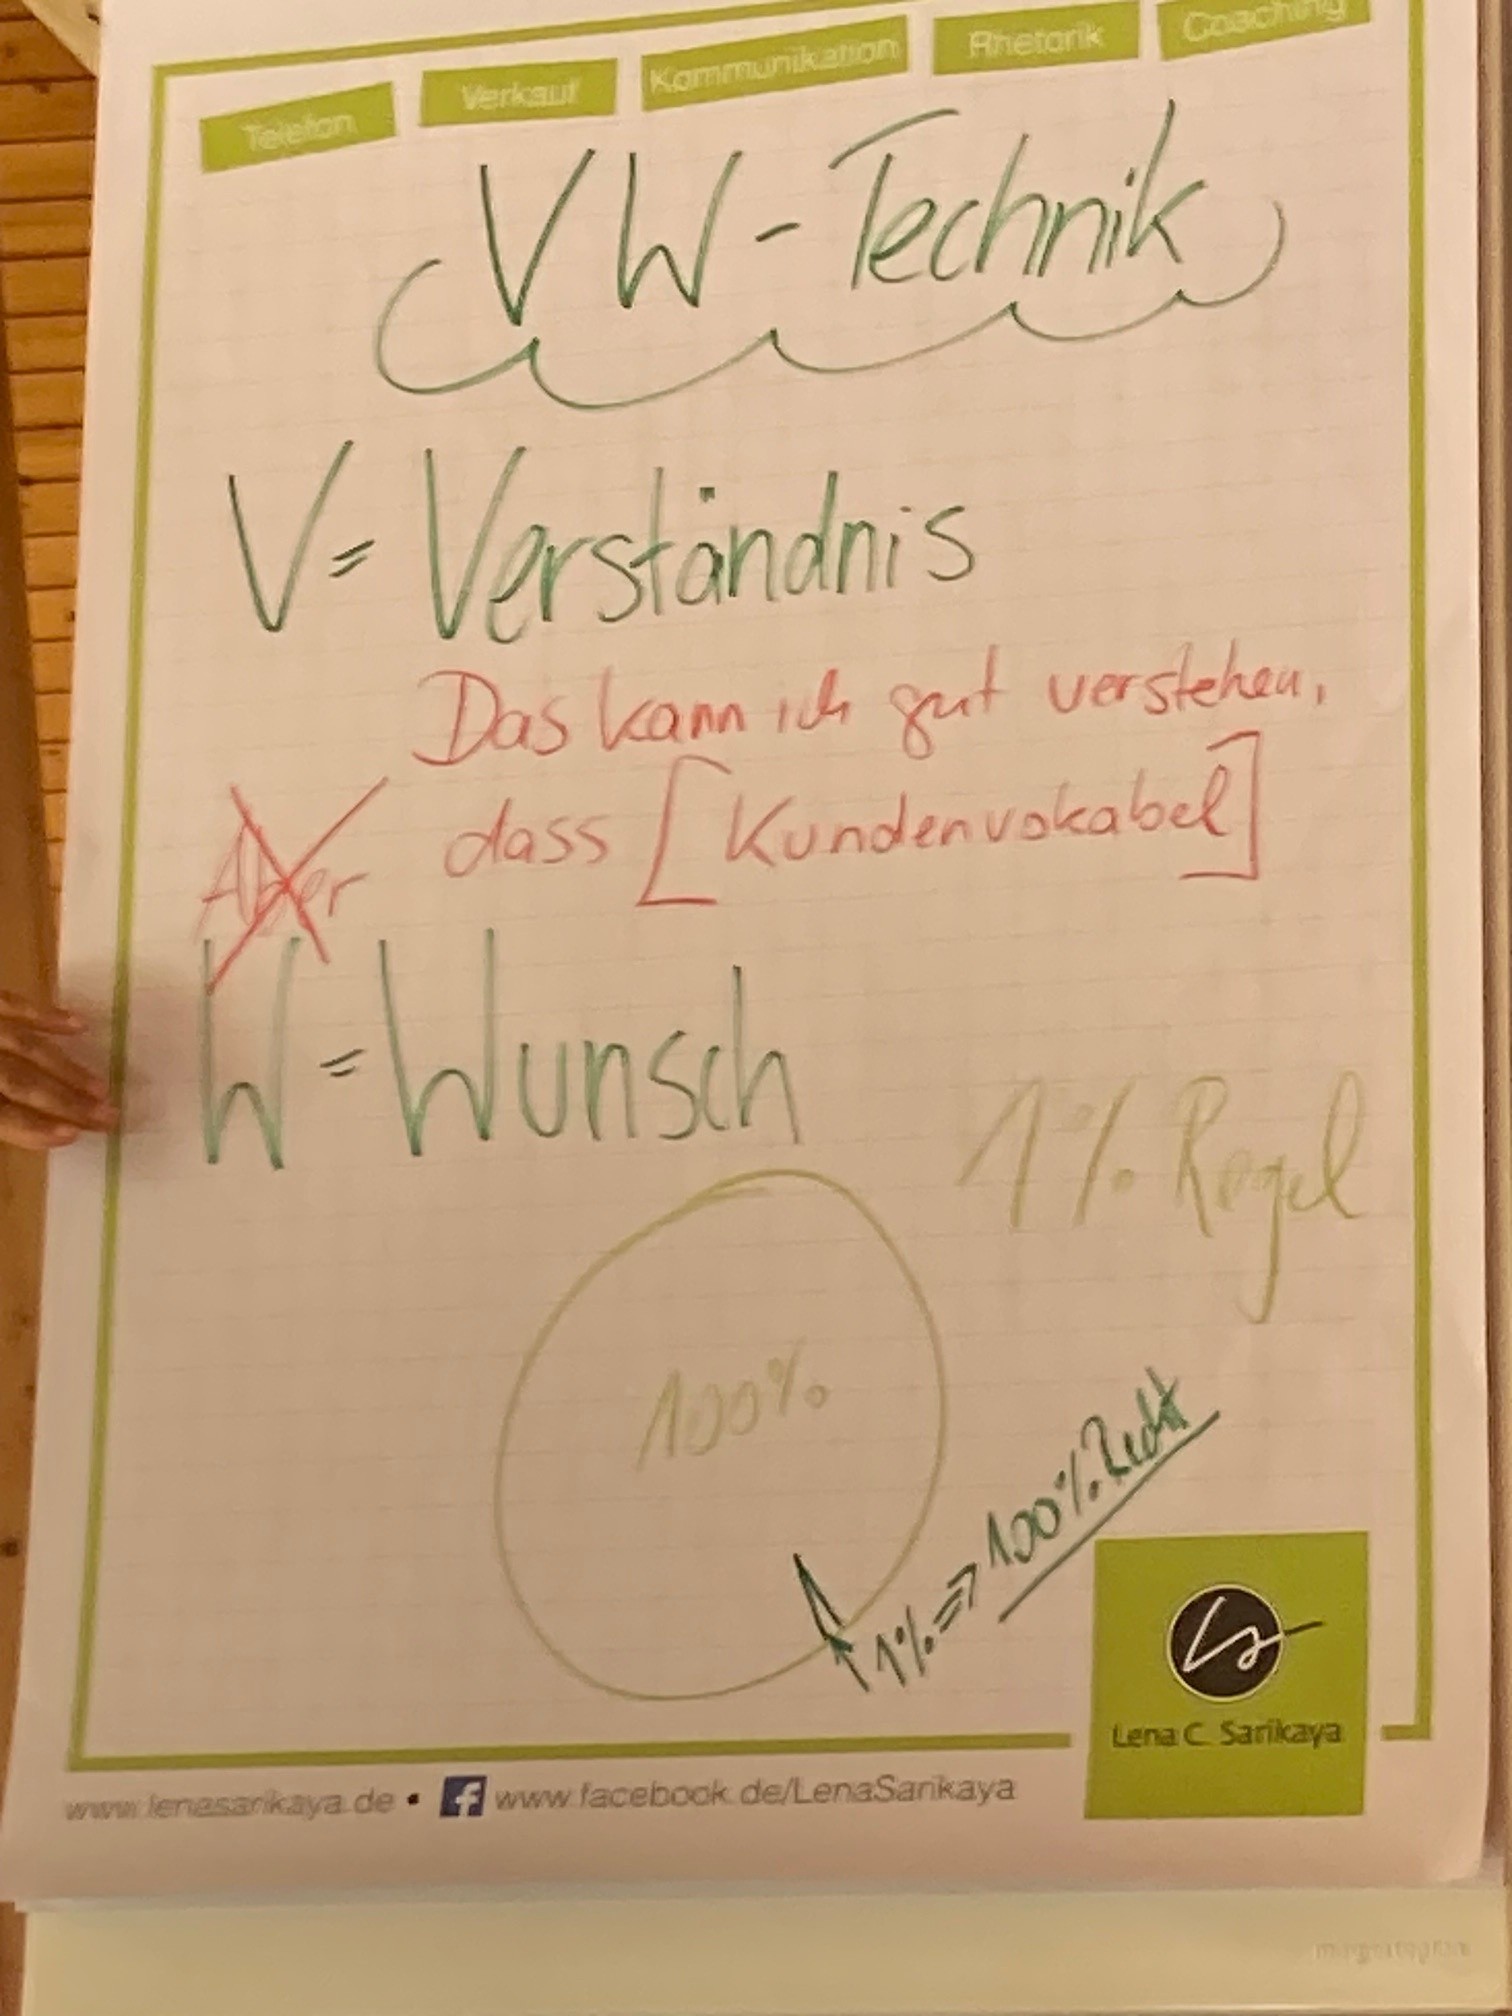 Telefon Verkauf Kommunikation Rhetorik Coaching
VW-Technik
V = Verständnis
Das kann ich gut verstehen,
dass [Kundenvokabel]
Aber
W = Wunsch
1% Regel
100%
1% => 100% Recht
Ls
Lena C. Sarikaya
www.lenasarikaya.de • f www.facebook.de/LenaSarikaya